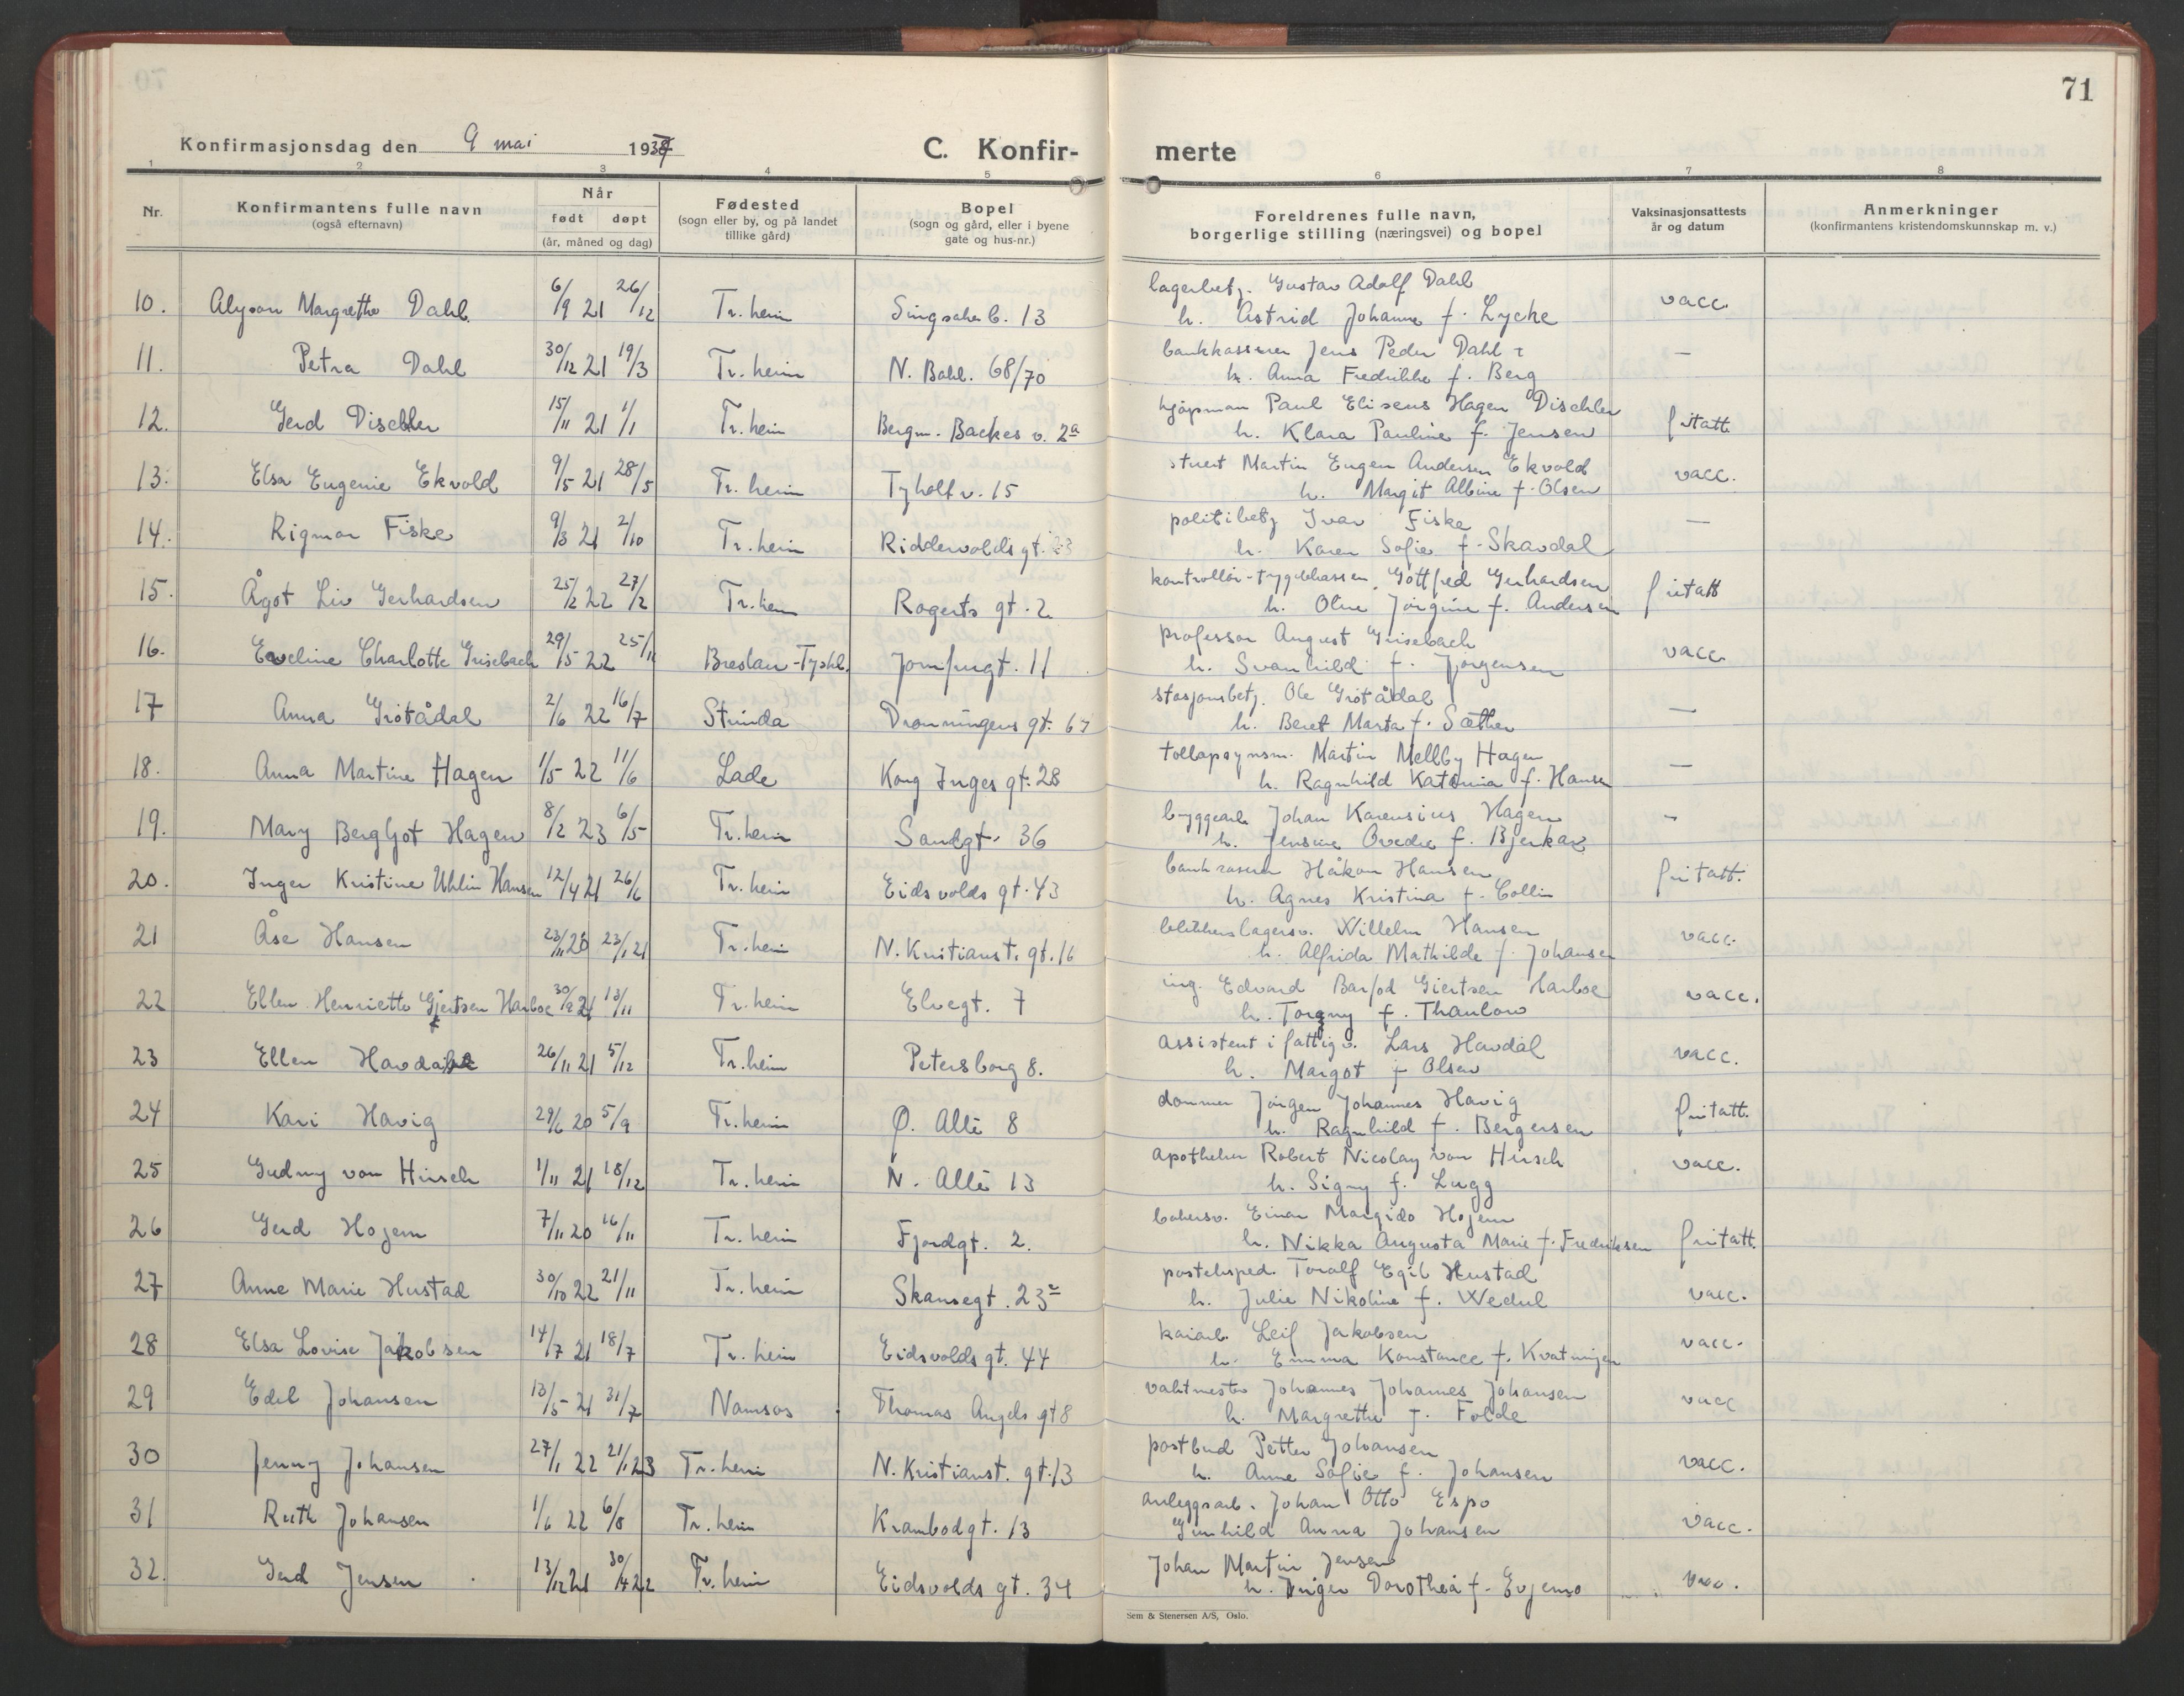 71
Konfirmasjonsdag den 9 mai 1937
C. Konfir- merte
1 2 3 4 5 6 7 8
Nr.
Konfirmantens fulle navn
(også efternavn)
Når
født døpt
(år, måned og dag)
Fødested
(sogn eller by, og på landet
tillike gård)
Bopel
(sogn og gård, eller i byene
gate og hus-nr.)
Foreldrenes fulle navn,
borgerlige stilling (næringsvei) og bopel
Vaksinasjonsattests
år og datum
Anmerkninger
(konfirmantens kristendomskunnskap m. v.)
lagerbetj. Gustav Adolf Dahl
10. Margrethe Dahl 6/9 21 26/12 Tr.heim 13 h. Astrid Johanne f. Lycke vacc.
Jens Peder Dahl
11. Petra Dahl 30/12 21 19/3 Tr.heim N. Bakl. 68/70 h. Anna Fredrikke f. Berg —
kjøpman Paul Eliseus Hagen Dischler
12. Gerd Dischler 15/11 21 1/1 Tr.heim Bergm. Backes v. 2a h. Klara Pauline f. Jensen fritatt
Martin Eugen Andersen Ekvold
13. Elsa Eugenie Ekvold 9/5 21 28/5 Tr.heim Tyholt v. 15 h. Margit Albine f. Olsen vacc.
politibetj Ivar Fiske
14. Rigmor Fiske 9/3 21 2/10 Tr.heim Riddervolds gt. h. Karen Sofie f. Skavdal —
kontrollør-trygdekassen. Gottfred Gerhardsen
15. Ågot Liv Gerhardsen 25/2 22 27/2 Tr.heim Rogerts gt. 2 h. Oline Jørgine f. Andersen fritatt
professor August Grisebach
16. Eveline Charlotte Grisebach 29/5 22 25/11 Breslau-Tyskl. Jomfrugt. 11 h. Svanhild f. Jørgensen vacc
stasjonsbetj. Ole Grøtådal
17 Anna Grøtådal 2/6 22 16/7 Strinda Dronningens gt. 67 h. Beret Marta f. Sæther —
tollopsynsm. Martin Mellby Hagen
18. Anna Martine Hagen 1/5 22 11/6 Lade Kong Inges gt. 28 h. Ragnhild f. Hansen —
byggearb Johan Karensius Hagen
19. Mary Bergljot Hagen 8/2 23 6/5 Tr.heim Sandgt. 36 h. Jensine f. Bjerkax —
Håkon Hansen
20. Inger Kristine Uhlin Hansen 12/4 21 26/6 Tr.heim Eidsvolds gt. 43 h. Agnes Kristina f. Collin fritatt.
blikkenslagersv. Willelm Hansen
21 Åse Hansen 23/11 20 23/1 21 Tr.heim N. Kristianst. gt. 16 h. Alfrida Mathilde f. Johansen vacc.
ing. Edvard Barfod Giertsen Harboe
22 Ellen Henriette Gjertsen Harboe 30/9 21 13/11 Tr.heim Elvegt. 7 h. Torgny f. Thaulow vacc.
assistent i fattigv. Lars Havdal
23 Ellen Havdahl 26/11 21 5/12 Tr.heim Petersborg 8. h. Margot f Olsen vacc.
dommer Jørgen Johannes Havig
24 Kari Havig 29/6 20 5/9 Tr.heim Ø. Allé 8 h. Ragnhild f. Bergersen fritatt.
apotheker Robert Nicolay von Hirsch
25 Gudny von Hirsch 1/11 21 18/12 Tr.heim N. Allé 13 h. Signy f. Lugg vacc.
bakersv. Einar Margido Hojem
26 Gerd Hojem 7/11 20 16/11 Tr.heim Fjordgt. 2. h. Nikka Augusta Marie f. Fredriksen fritatt.
posteksped. Toralf Egil Hustad
27 Anne Marie Hustad 30/10 22 21/11 Tr.heim Skansegt. 23 h. Julie Nikoline f. Wedul vacc.
kaiarb. Leif Jakobsen
28 Elsa Lovise Jakobsen 14/7 21 18/7 Tr.heim Eidsvolds gt. 44 h. Emma Konstance f. Kvatningen vacc.
vaktmester Johannes Johannes Johansen
29 Edel Johansen 13/5 21 31/7 Namsos Thomas Angels gt 8 h. Margrethe f. Folde vacc
postbud Petter Johansen
30 Jenny Johansen 27/1 22 21/1 23 Tr.heim N. Kristianst. gt. 13 h. Anne Sofie f. Johansen vacc.
anleggsarb. Johan Otto Espo
31 Ruth Johansen 1/6 22 6/8 Tr.heim Krambodgt. 13 Gunhild Anna Johansen vacc.
Johan Martin Jensen
32. Gerd Jensen 13/12 21 30/4 22 Tr.heim Eidsvolds gt. 34 h. Inger Dorothea f. Evjemo vacc.
Sem & Stenersen A/S, Oslo.